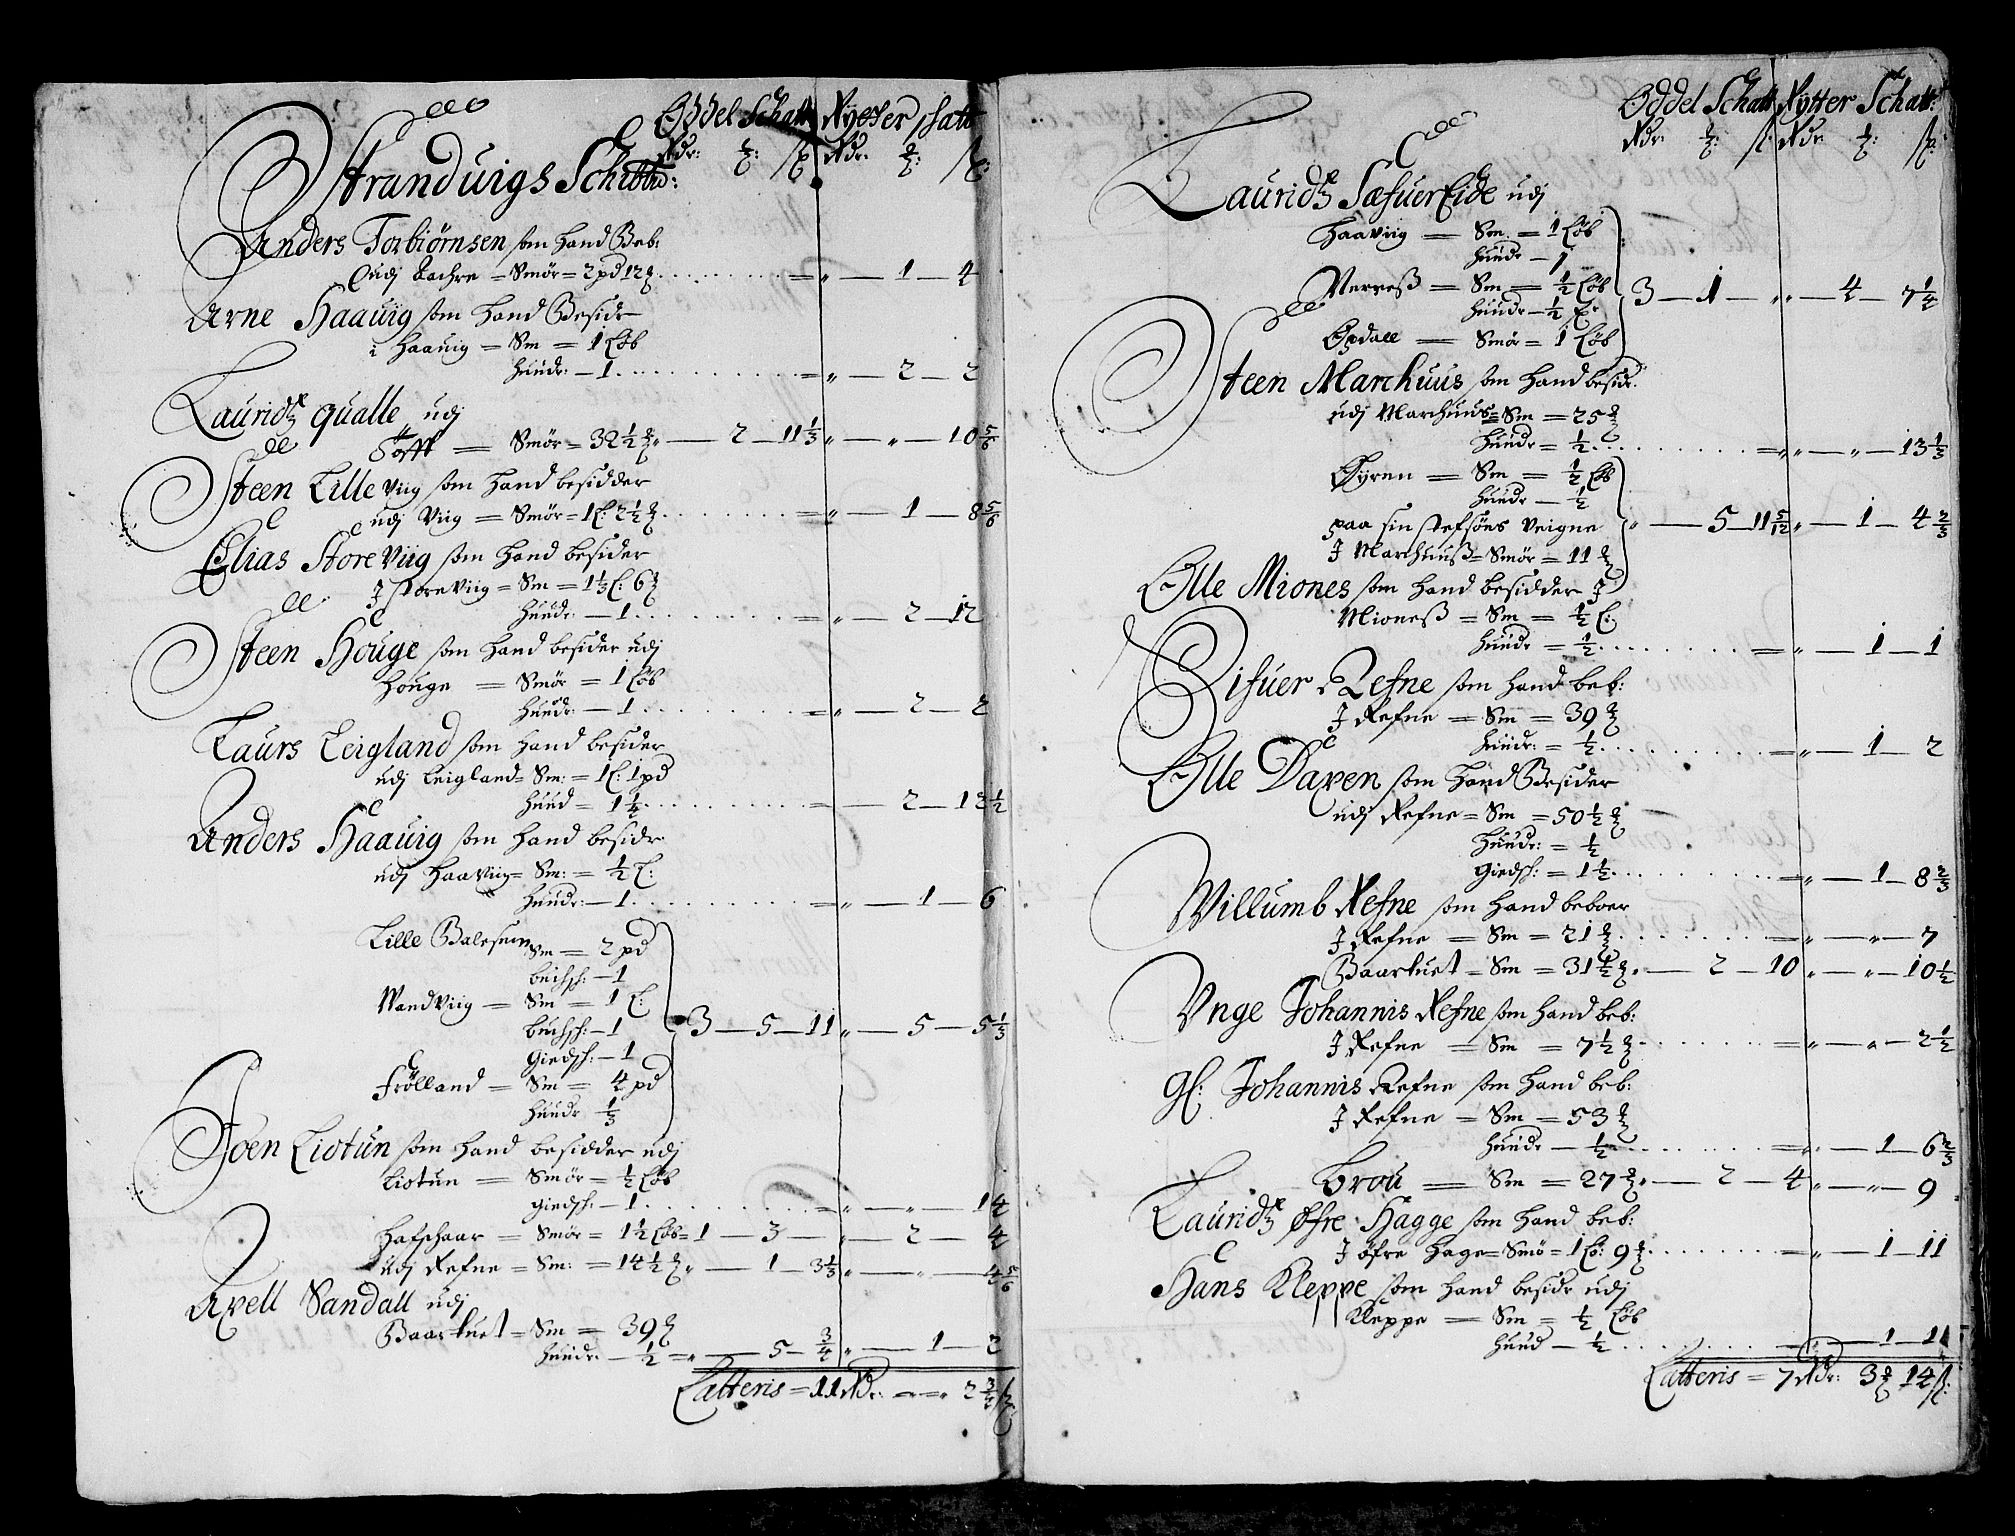 Oddel Schatt Rytter schatt
Rdr: ß: Rdr: ß:
Stranduigs Schibbr:
Anders Torbiørnsen som hand Beb:
udj bachre = Smør = 2 pd 12 = „ — 1 — 4
Arne Haauig som hand Besidr
i Haauig = Sm = 1 Løb
huudr: — 1 = „ — 2 — 2
Lauridtz qualle udj
Tofft = Smør = 32 1/2 „ — 2 — 11 1/3 „ — „ — 10 5/6
Steen Lille viig som hand besidder
udj Viig = Smør = 1 L: 2 1/2 = „ — 1 — 8 5/6
Elias Store Viig som hand besider
J storeViig = Sm = 1 1/3 L: 6
huudr: — 1 = „ — 2 — 12
Steen Houge som hand besider udj
Houge = Smør = 1 Løb
huudr: — 1 = „ — 2 — 2
Laurs Leigland som hand besider
udj Leigland = Sm: = 1 L: 1 pd
huud = 1 1/4 = — 2 — 12 1/2
Anders Haauig som hand besidr
udj HaaViig = Sm: = 1/2 L:
huudr: — 1 = „ — 1 — 6
Lille Balesem Sm = 2 pd
buchsk: — 1
Wandviig = Sm = 1 L:
buchsk: — 1 3 — 5 — 11 „ — 5 — 5 1/3
Giedsk: — 1
Frölland = Sm = 4 pd
huudr 1/3
Joen Liotun som hand besidder udj
Liotun = Smør = 1/2 Løb
giedsk: — 1 = „ — „ — 14
Hafschaar = Smør = 1 1/2 Løb = 1 — 3 — „ — 2 — 4
udj Refne = Sm: = 14 1/2 „ — 1 — 3 1/3 „ — „ — 4 5/6
Axell Sandall udj
Baartuet = Sm = 39
huudr: — 1/2 = „ — 5 — 3/4 „ — 1 — 2
Latteris = 11 Rdr: = „ 2 3/4 ß:
Oddel Schatt Rytter Schatt:
Rdr: ß: Rdr: ß:
Lauridtz Sæfuer Eide udj
Haaviig = Sm = 1 Løb
huudr — 1
Verreß = Sm = 1/2 Løb 3 — 1 — „ „ — 4 — 7 1/4
huudr — 1/2
Opdall = Smör = 1 Løb
Steen Marchuus som hand besidr
udj Marchuus = Sm = 25
huudr = 1/2 = „ „ — „ — 13 1/3
Øyren = Sm = 1/2 Løb
huudr — 1/2
paa sin stefsøns veigne „ — 5 — 11 5/12 „ — 1 — 4 2/3
J Marchuuß = Smør = 11
Olle Miones som hand besidder J
Mioneß = Sm = 1/2 L:
huudr = 1/2 = „ — 1 — 1
Sifuer Refne som hand beb:
J Refne = Sm = 39
huudr: = 1/2 = „ — 1 — 2
Olle Daxen som hand Besider
udj Refne = Sm = 50 1/2
huudr: = 1/2
giedsk: = 1 1/2 = „ — 1 — 8 2/3
Willumb Refne som hand beboer
J Refne = Sm = 21 = „ — „ — 7
Baartuet = Sm = 31 1/2 „ — 2 — 10 „ — „ — 10 1/2
Vnge Johannis Refne som hand beb:
J Refne = Sm = 7 1/2 = „ — „ — 2 1/2
gl: Johannis Refne som hand beb:
J Refne = Sm = 53
huudr — 1/2 = „ — 1 — 6 2/3
Brou = Sm = 27 „ — 2 — 4 „ — „ — 9
Lauridtz Øfre Hagge som hand beb:
J øfre hage = Smö = 1 Lö: 9 = „ — 1 — 11
Hans Kleppe som hand besidr udj
Kleppe = Sm = 1/2 Løb
huud — 1/2 — 1 — 11
Latteris = 7 Rdr: 3 14 ß: